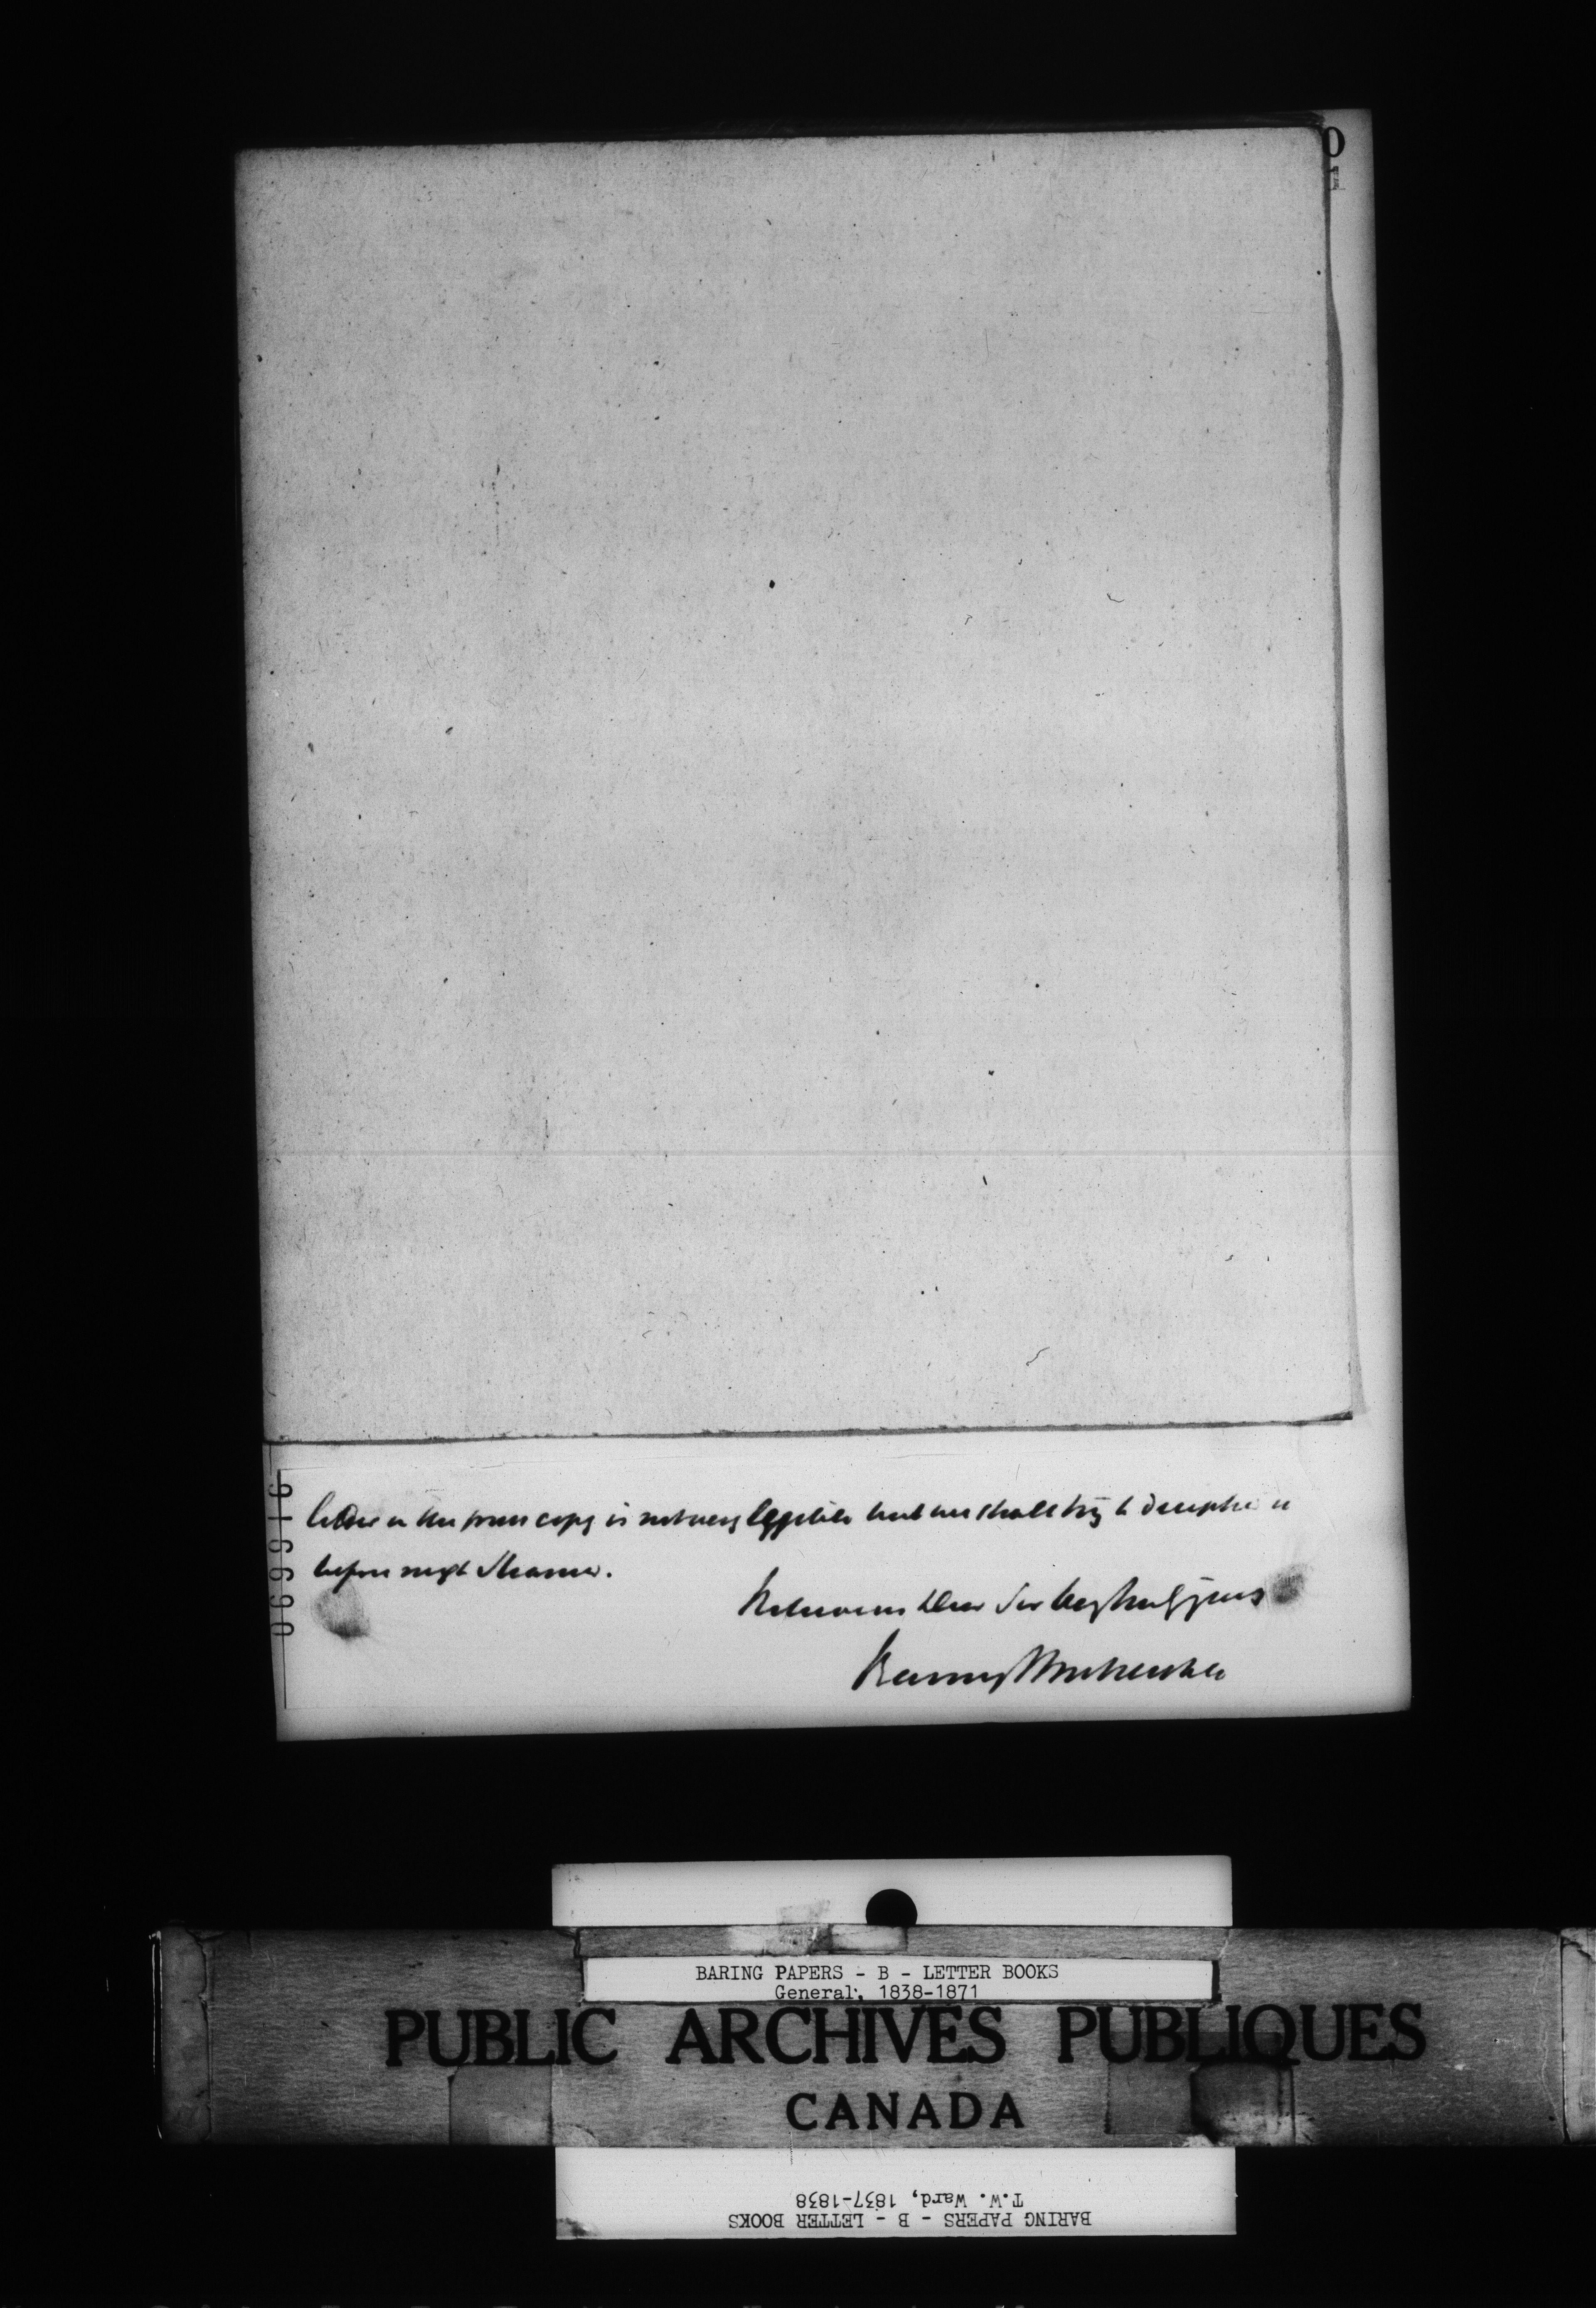 0
1
letter in the press copy is not very legible but we shall try to decipher it
before next Steamer.
We remain Dear Sir very truly yours
069916
BARING PAPERS - B - LETTER BOOKS
General, 1838-1871
PUBLIC ARCHIVES PUBLIQUES
CANADA
BARING PAPERS - B - LETTER BOOKS
T.W. Ward, 1837-1838